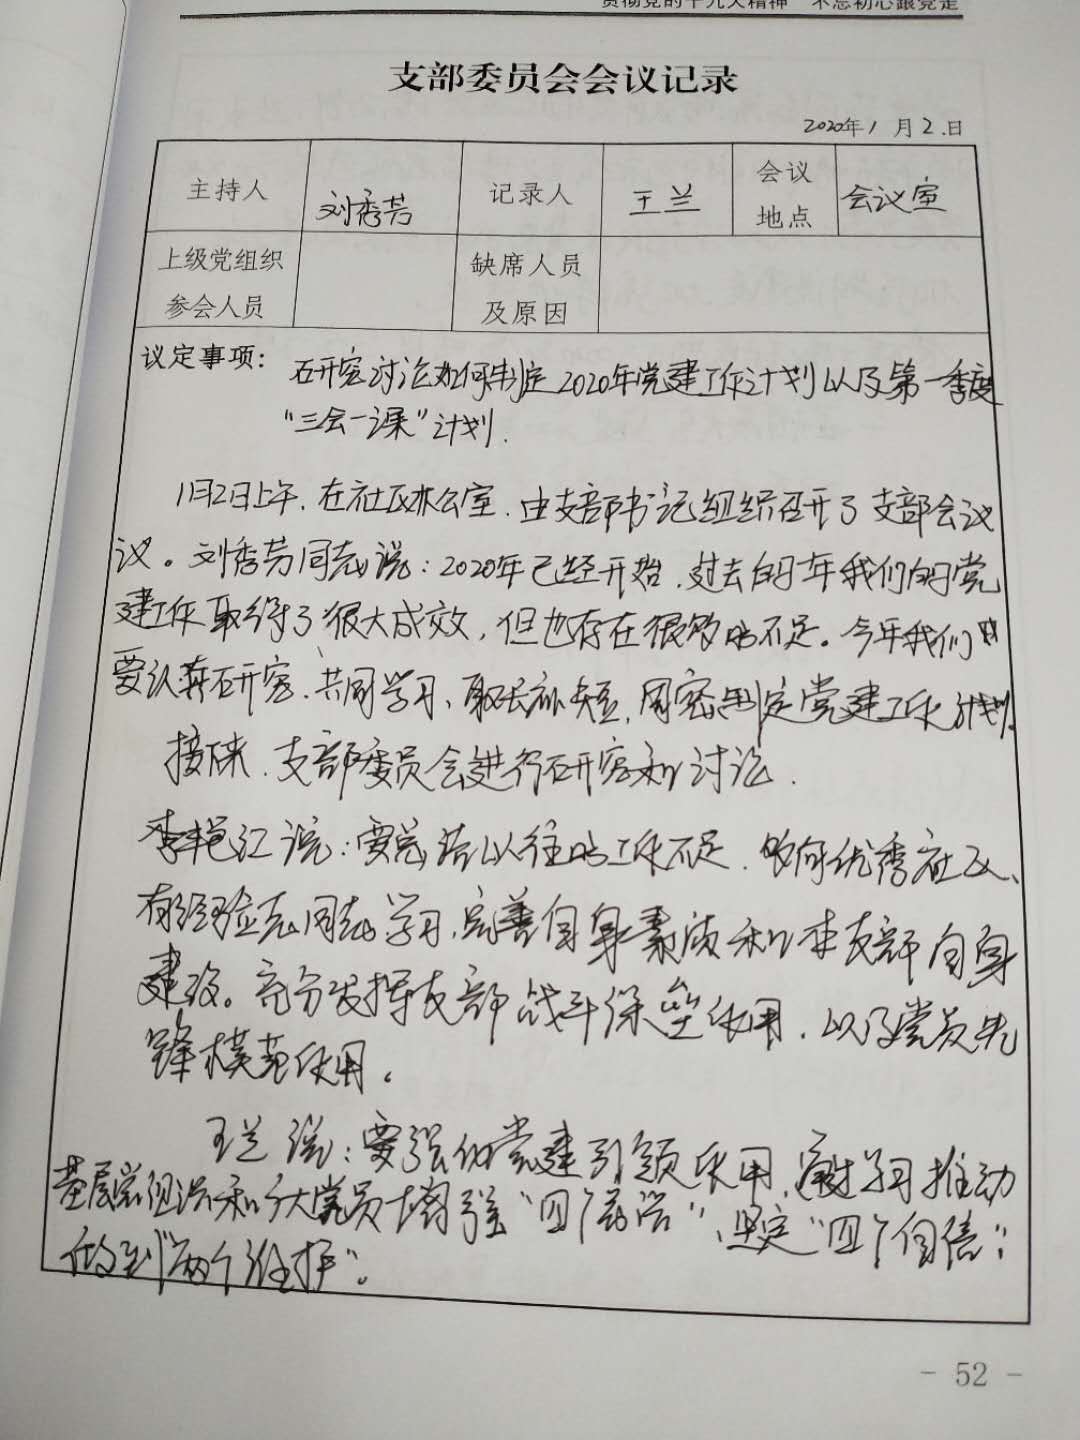 贯彻党的十九大精神 不忘初心跟党走
支部委员会会议记录
2020年1月2日
主持人 刘秀芳 记录人 王兰 会议地点 会议室
上级党组织参会人员 缺席人员及原因
议定事项：研究讨论如何制定2020年党建工作计划以及第一季度
“三会一课”计划.
1月2日上午.在社区办公室.由支部书记组织召开了支部会议
议。刘秀芳同志说：2020年已经开始.过去的一年我们的党
建工作取得了很大成效,但也存在很多的不足。今年我们
要认真研究、共同学习、取长补短,周密制定党建工作计划.
接下来.支部委员会进行研究和讨论.
李艳红说：要总结以往的工作不足.向优秀社区、
有经验老同志学习.完善自身素质和本支部自身
建设。充分发挥支部战斗保垒作用.以及党员先
锋模范作用。
王兰说：要强化党建引领作用,通过学习推动
基层党组织和广大党员增强“四个意识”、坚定“四个自信”、
做到“两个维护”。
- 52 -